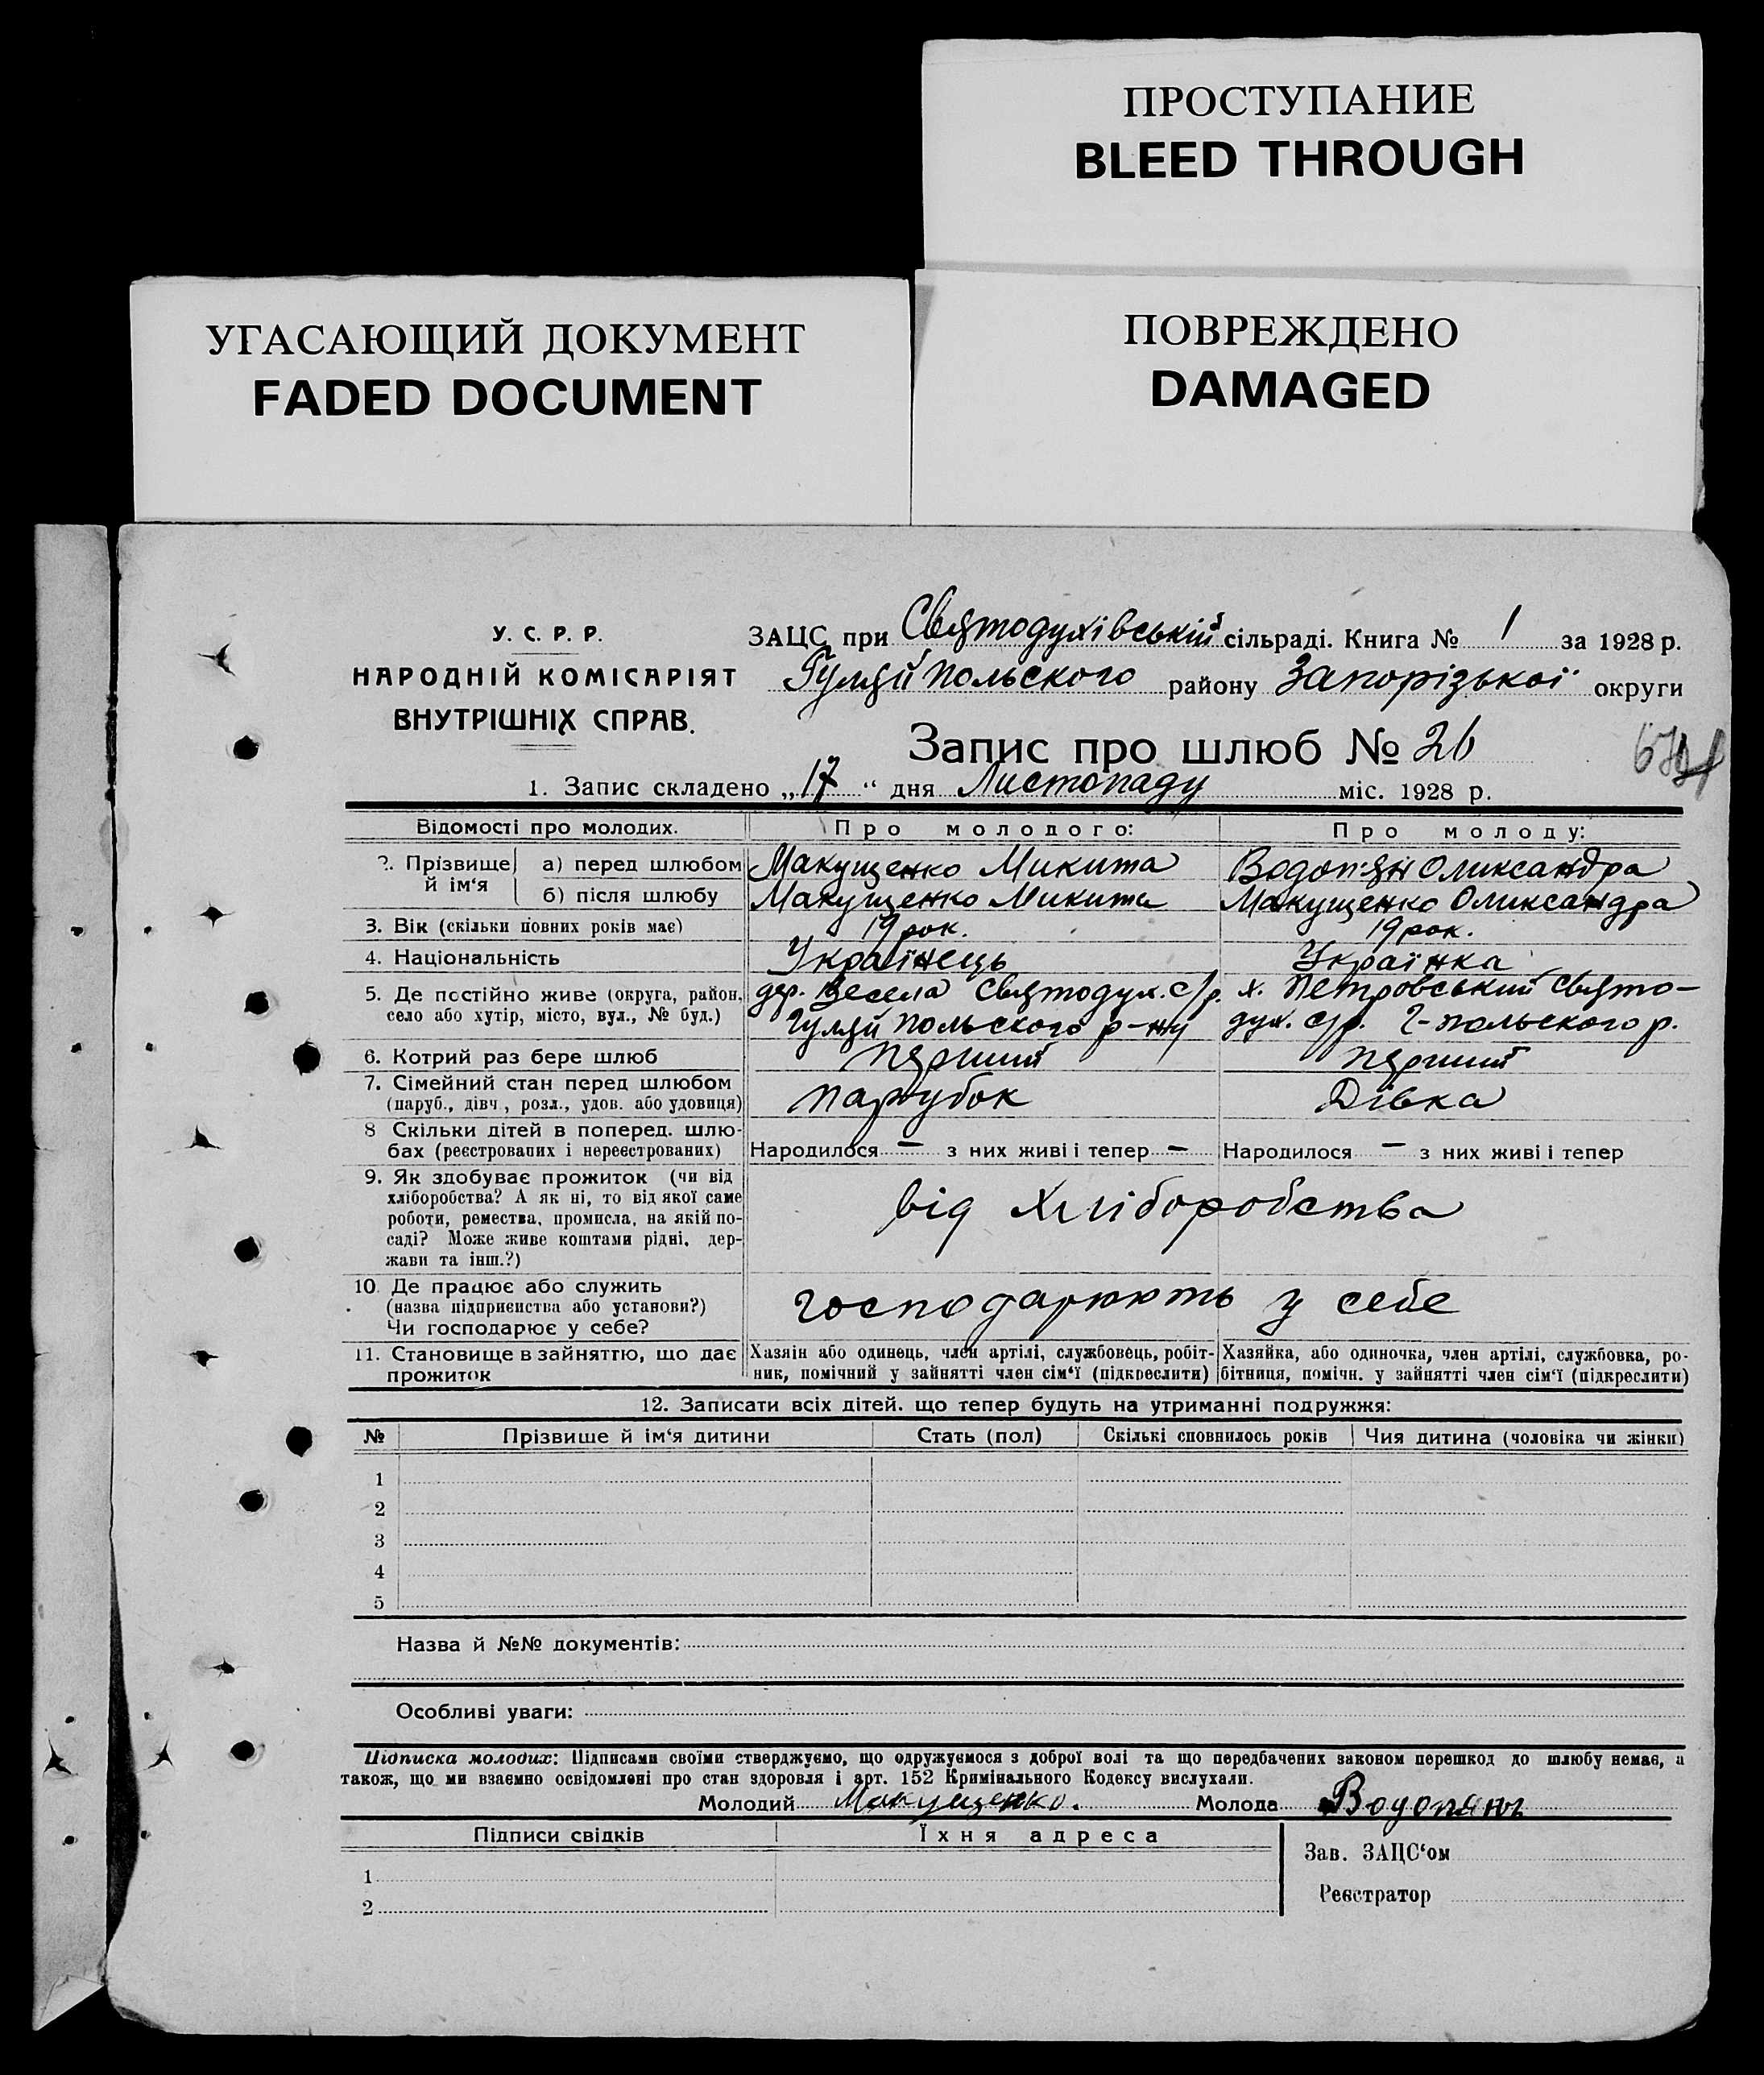 ПРОСТУПАНИЕ
BLEED THROUGH
УГАСАЮЩИЙ ДОКУМЕНТ
FADED DOCUMENT
ПОВРЕЖДЕНО
DAMAGED
У. С. Р. Р.
НАРОДНІЙ КОМІСАРІЯТ
ВНУТРІШНІХ СПРАВ.
ЗАЦС при Святодухівській сільраді. Книга № 1 за 1928 р.
Гуляй польского району Запорізької округи
Запис про шлюб № 26
1. Запис складено „17“ дня Листопаду міс. 1928 р.
Відомості про молодих. Про молодого: Про молоду:
2. Прізвище й ім‘я а) перед шлюбом Макущенко Микита Водоп'ян Олександра
б) після шлюбу Макущенко Микита Макущенко Олександра
3. Вік (скільки повних років має) 19 рок. 19 рок.
4. Національність Українець Українка
5. Де постійно живе (округа, район, дер. Весела Святодух. с/р. х. Петровський Свято-
село або хутір, місто, вул., № буд.) Гуляй польского р-ну дух. с/р. Г-польского р.
6. Котрий раз бере шлюб перший перший
7. Сімейний стан перед шлюбом
(паруб., дівч., розл., удов. або удовиця) парубок Дівка
8 Скільки дітей в поперед. шлю-
бах (реєстрованих і нереєстрованих) Народилося — з них живі і тепер — Народилося — з них живі і тепер
9. Як здобуває прожиток (чи від
хліборобства? А як ні, то від якої саме
роботи, ремества, промисла, на якій по-
саді? Може живе коштами рідні, дер-
жави та інш.?)
від хліборобства
10. Де працює або служить
(назва підприємства або установи?)
Чи господарює у себе?
господарюють у себе
11. Становище в зайняттю, що дає
прожиток
Хазяін або одинець, член артілі, службовець, робіт-
ник, помічний у зайнятті член сім‘ї (підкреслити)
Хазяйка, або одиночка, член артілі, службовка, ро-
бітниця, помічн. у зайнятті член сім‘ї (підкреслити)
12. Записати всіх дітей, що тепер будуть на утриманні подружжя:
№ Прізвише й ім‘я дитини Стать (пол) Скількі сповнилось років Чия дитина (чоловіка чи жінки)
1
2
3
4
5
Назва й №№ документів:
Особливі уваги:
Підписка молодих: Підписами своїми стверджуємо, що одружуємося з доброї волі та що передбачених законом перешкод до шлюбу немає, а
також, що ми взаємно освідомлені про стан здоровля і арт. 152 Кримінального Кодексу вислухали.
Молодий Макущенко. Молода
Підписи свідків Їхня адреса
Зав. ЗАЦС‘ом
1
Реєстратор
2